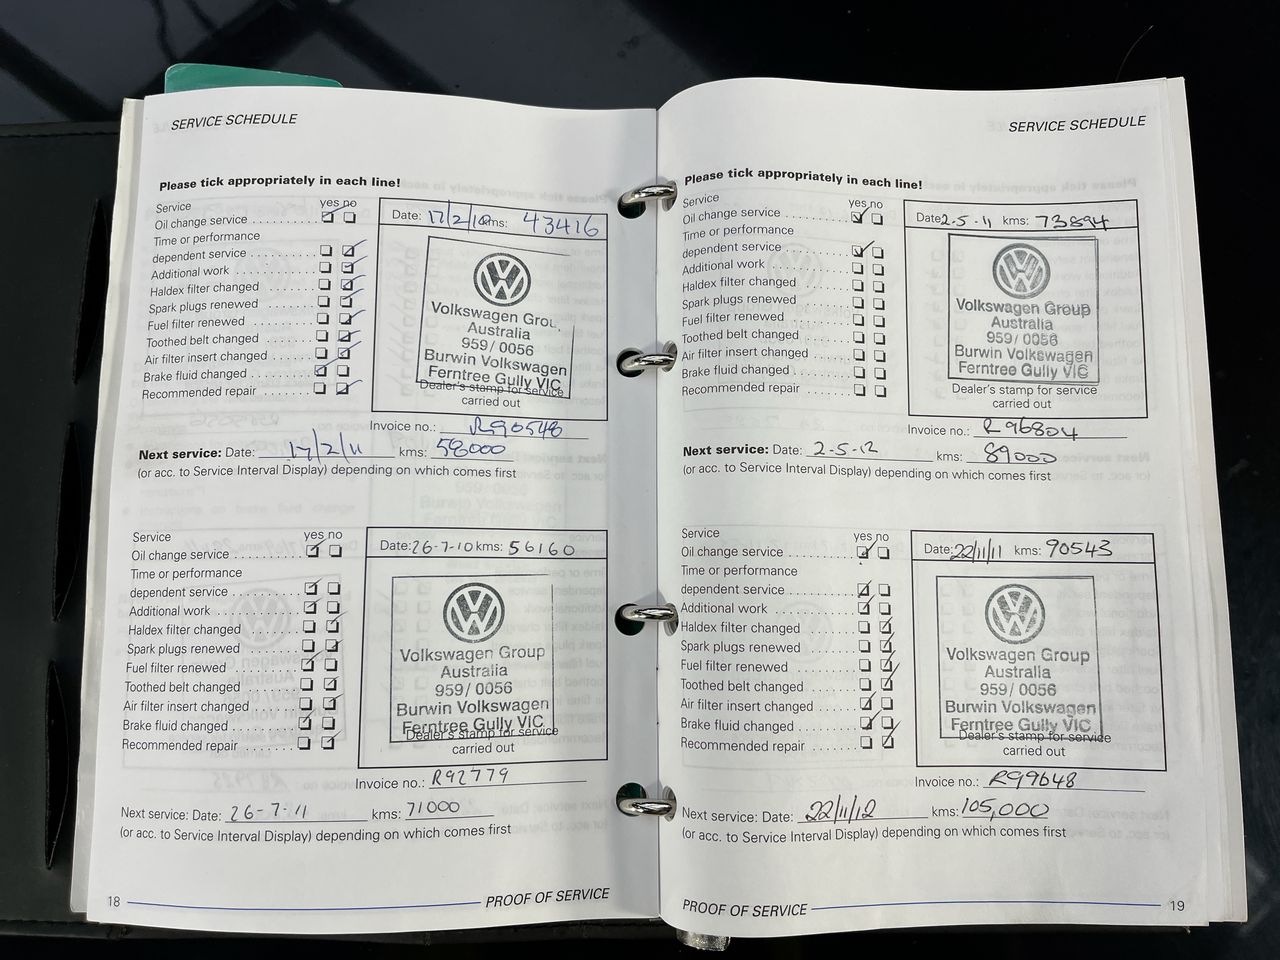 SERVICE SCHEDULE
Please tick appropriately in each line!
Service yes no
Oil change service
Time or performance
dependent service
Additional work
Haldex filter changed
Spark plugs renewed
Fuel filter renewed
Toothed belt changed
Air filter insert changed
Brake fluid changed
Recommended repair
Date: 17/2/10 kms: 43416
Volkswagen Grou
Australia
959/ 0056
Burwin Volkswagen
Ferntree Gully VIC
Dealer's stamp for service
carried out
Invoice no.: R90548
Next service: Date: 17/2/11 kms: 58000
(or acc. to Service Interval Display) depending on which comes first
Service yes no
Oil change service
Time or performance
dependent service
Additional work
Haldex filter changed
Spark plugs renewed
Fuel filter renewed
Toothed belt changed
Air filter insert changed
Brake fluid changed
Recommended repair
Date: 26-7-10 kms: 56160
Volkswagen Group
Australia
959/ 0056
Burwin Volkswagen
Ferntree Gully VIC
Dealer's stamp for service
carried out
Invoice no.: R92779
Next service: Date: 26-7-11 kms: 71000
(or acc. to Service Interval Display) depending on which comes first
18 PROOF OF SERVICE
SERVICE SCHEDULE
Please tick appropriately in each line!
Service yes no
Oil change service
Time or performance
dependent service
Additional work
Haldex filter changed
Spark plugs renewed
Fuel filter renewed
Toothed belt changed
Air filter insert changed
Brake fluid changed
Recommended repair
Date: 2-5-11 kms: 73894
Volkswagen Group
Australia
959/ 0056
Burwin Volkswagen
Ferntree Gully VIC
Dealer's stamp for service
carried out
Invoice no.: R96804
Next service: Date: 2-5-12 kms: 89000
(or acc. to Service Interval Display) depending on which comes first
Service yes no
Oil change service
Time or performance
dependent service
Additional work
Haldex filter changed
Spark plugs renewed
Fuel filter renewed
Toothed belt changed
Air filter insert changed
Brake fluid changed
Recommended repair
Date: 22/11/11 kms: 90543
Volkswagen Group
Australia
959/ 0056
Burwin Volkswagen
Ferntree Gully VIC
Dealer's stamp for service
carried out
Invoice no.: R99648
Next service: Date: 22/11/12 kms: 105,000
(or acc. to Service Interval Display) depending on which comes first
PROOF OF SERVICE 19